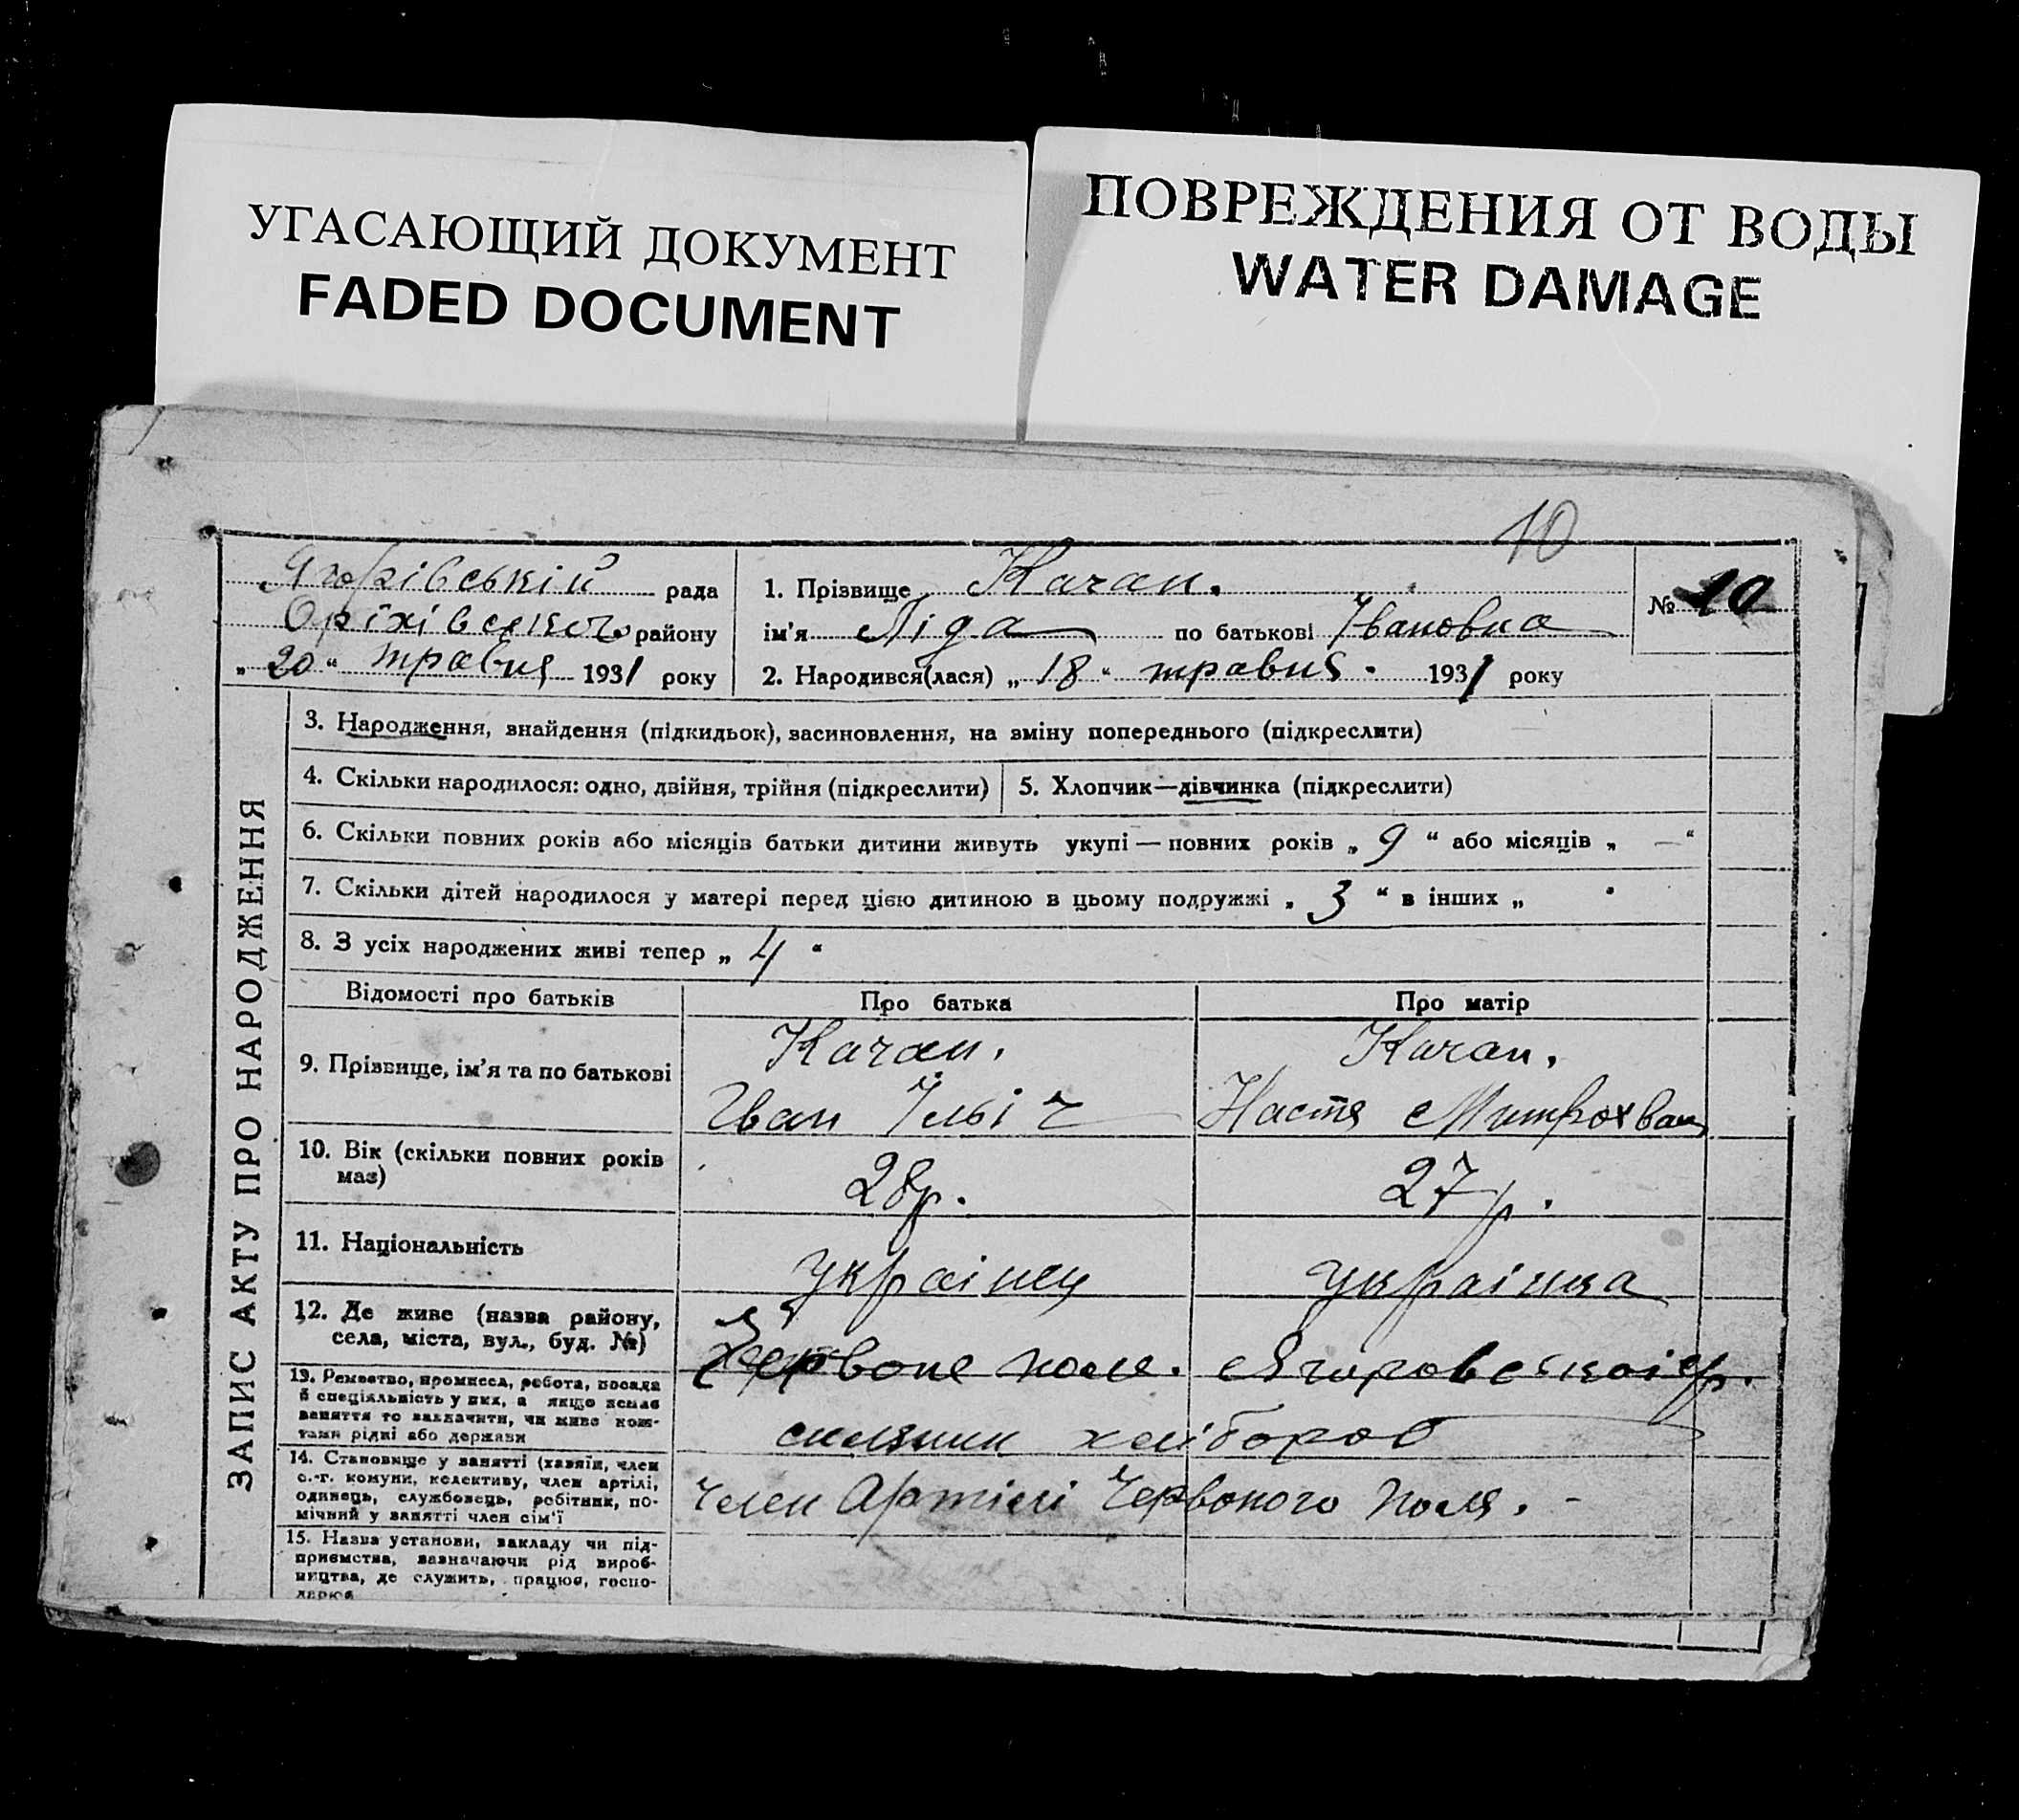 УГАСАЮЩИЙ ДОКУМЕНТ
FADED DOCUMENT
ПОВРЕЖДЕНИЯ ОТ ВОДЫ
WATER DAMAGE
10
рада
Оріхівського району
„ 20 “ травня 1931 року
1. Прізвище Качан.
ім'я Ліда по батькові Івановна
2. Народився(лася) „ 18 “ травня. 1931 року
№ 10
ЗАПИС АКТУ ПРО НАРОДЖЕННЯ
3. Народження, знайдення (підкидьок), засиновлення, на зміну попереднього (підкреслити)
4. Скільки народилося: одно, двійня, трійня (підкреслити)
5. Хлопчик—дівчинка (підкреслити)
6. Скільки повних років або місяців батьки дитини живуть укупі — повних років „ 9 “ або місяців „ — “
7. Скільки дітей народилося у матері перед цією дитиною в цьому подружжі „ 3 “ в інших „ “
8. З усіх народжених живі тепер „ 4 “
Відомості про батьків Про батька Про матір
9. Прізвище, ім'я та по батькові
Качан. Качан.
Іван Ільіч Настя
10. Вік (скільки повних років
має)
28р. 27р.
11. Національність
українец українка
12. Де живе (назва району,
села, міста, вул., буд. №)
Червоне поле.
13. Ремество, промисел, робота, посада
й спеціяльність у них, а якщо немає
заняття то зазначити, чи живе кош-
тами рідні або держави
хлібороб
14. Становище у занятті (хазяїн, член
с.-г. комуни, колективу, член артілі,
одинець, службовець, робітник, по-
мічний у занятті член сім'ї
член Артілі Червоного Поля. -
15. Назва установи, закладу чи під-
приємства, зазначаючи рід вироб-
ництва, де служить, працює, госпо-
дарює